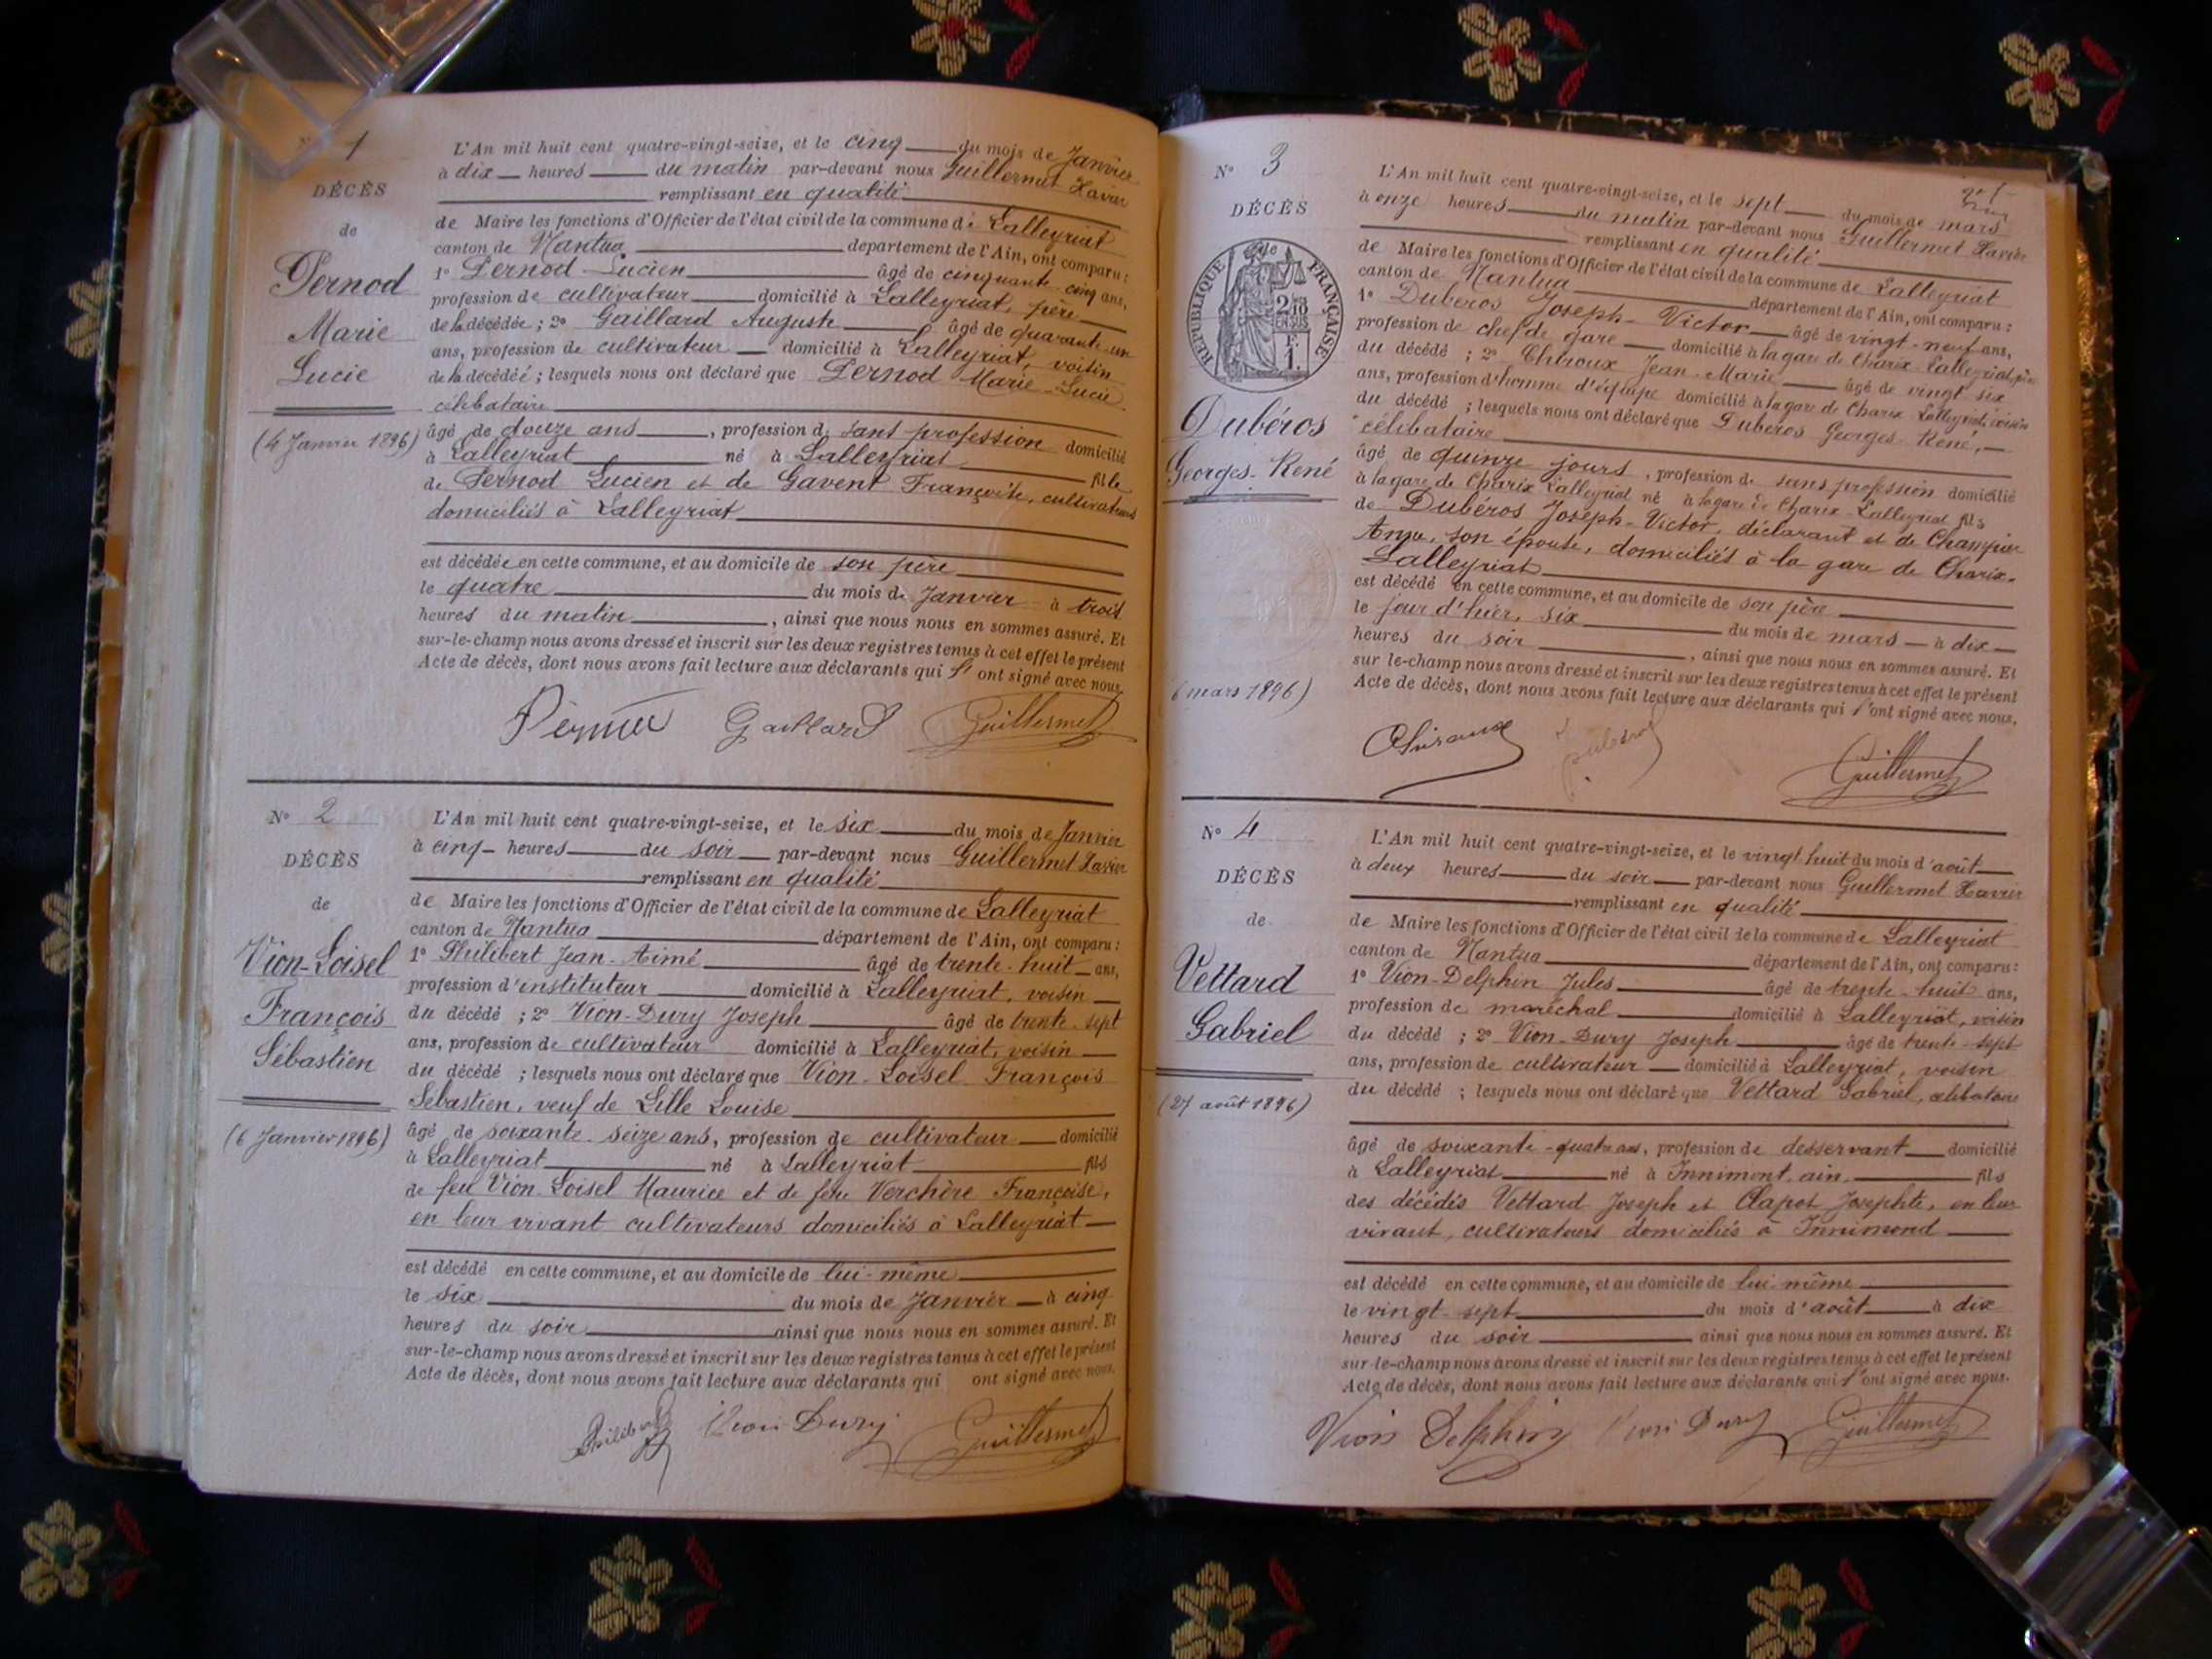 N° 1
DÉCÈS
de
Pernod
Marie
Lucie
(4 Janvier 1896)
L'An mil huit cent quatre-vingt-seize, et le cinq du mois de Janvier
à dix heures du matin par-devant nous Guillermet Xavier
remplissant en qualité
de Maire les fonctions d'Officier de l'état civil de la commune de Lalleyriat
canton de Nantua département de l'Ain, ont comparu :
1° Pernod Lucien âgé de cinquante-cinq ans,
profession de cultivateur domicilié à Lalleyriat, père
de la décédée ; 2° Gaillard Auguste âgé de quarante-un
ans, profession de cultivateur domicilié à Lalleyriat, voisin
de la décédée ; lesquels nous ont déclaré que Pernod Marie-Lucie
célibataire
âgé de douze ans, profession de sans profession domicilié
à Lalleyriat né à Lalleyriat fille
de Pernod Lucien et de Gavent Françoise, cultivateurs
domiciliés à Lalleyriat
est décédée en cette commune, et au domicile de son père
le quatre du mois de Janvier à trois
heures du matin, ainsi que nous nous en sommes assuré. Et
sur-le-champ nous avons dressé et inscrit sur les deux registres tenus à cet effet le présent
Acte de décès, dont nous avons fait lecture aux déclarants qui l' ont signé avec nous.
Gaillard Guillermet
N° 2
DÉCÈS
de
Vion-Loisel
François
Sébastien
(6 Janvier 1896)
L'An mil huit cent quatre-vingt-seize, et le six du mois de Janvier
à cinq heures du soir par-devant nous Guillermet Xavier
remplissant en qualité
de Maire les fonctions d'Officier de l'état civil de la commune de Lalleyriat
canton de Nantua département de l'Ain, ont comparu :
1° Philibert Jean-Aimé âgé de trente-huit ans,
profession d'instituteur domicilié à Lalleyriat, voisin
du décédé ; 2° Vion-Dury Joseph âgé de trente-sept
ans, profession de cultivateur domicilié à Lalleyriat, voisin
du décédé ; lesquels nous ont déclaré que Vion-Loisel François
Sébastien, veuf de Lille Louise
âgé de soixante-seize ans, profession de cultivateur domicilié
à Lalleyriat né à Lalleyriat fils
de feu Vion-Loisel Maurice et de feue Verchère Françoise,
en leur vivant cultivateurs domiciliés à Lalleyriat
est décédé en cette commune, et au domicile de lui-même
le six du mois de Janvier à cinq
heures du soir ainsi que nous nous en sommes assuré. Et
sur-le-champ nous avons dressé et inscrit sur les deux registres tenus à cet effet le présent
Acte de décès, dont nous avons fait lecture aux déclarants qui ont signé avec nous.
Philibert Vion-Dury Guillermet
N° 3
DÉCÈS
de
RÉPUBLIQUE FRANÇAISE
2/10
EN SUS
F.
1.
Dubéros
Georges-René
6 mars 1896)
L'An mil huit cent quatre-vingt-seize, et le sept du mois de mars
à onze heures du matin par-devant nous Guillermet Xavier
remplissant en qualité
de Maire les fonctions d'Officier de l'état civil de la commune de Lalleyriat
canton de Nantua département de l'Ain, ont comparu :
1° Dubéros Joseph-Victor âgé de vingt-neuf ans,
profession de chef de gare domicilié à la gare de Charix-Lalleyriat, père
du décédé ; 2° Chiroux Jean-Marie âgé de vingt six
ans, profession d'homme d'équipe domicilié à la gare de Charix Lalleyriat, voisin
du décédé ; lesquels nous ont déclaré que Dubéros Georges-René,
célibataire
âgé de quinze jours, profession de sans profession domicilié
à la gare de Charix Lalleyriat né à la gare de Charix-Lalleyriat fils
de Dubéros Joseph-Victor, déclarant et de Champier
son épouse, domiciliés à la gare de Charix-
Lalleyriat
est décédé en cette commune, et au domicile de son père
le jour d'hier, six du mois de mars à dix
heures du soir, ainsi que nous nous en sommes assuré. Et
sur-le-champ nous avons dressé et inscrit sur les deux registres tenus à cet effet le présent
Acte de décès, dont nous avons fait lecture aux déclarants qui l'ont signé avec nous.
Guillermet
N° 4
DÉCÈS
de
Vettard
Gabriel
(27 août 1896)
L'An mil huit cent quatre-vingt-seize, et le vingt huit du mois d'août
à deux heures du soir par-devant nous Guillermet Xavier
remplissant en qualité
de Maire les fonctions d'Officier de l'état civil de la commune de Lalleyriat
canton de Nantua département de l'Ain, ont comparu :
1° Vion-Delphin Jules âgé de trente-huit ans,
profession de maréchal domicilié à Lalleyriat, voisin
du décédé ; 2° Vion-Dury Joseph âgé de trente-sept
ans, profession de cultivateur domicilié à Lalleyriat, voisin
du décédé ; lesquels nous ont déclaré que Vettard Gabriel, célibataire
âgé de soixante-quatre ans, profession de desservant domicilié
à Lalleyriat né à Innimont, ain, fils
des décédés Vettard Joseph et Clapot Josephte, en leur
vivant, cultivateurs domiciliés à Innimond
est décédé en cette commune, et au domicile de lui-même
le vingt-sept du mois d'août à dix
heures du soir ainsi que nous nous en sommes assuré. Et
sur-le-champ nous avons dressé et inscrit sur les deux registres tenus à cet effet le présent
Acte de décès, dont nous avons fait lecture aux déclarants qui l'ont signé avec nous.
Vion Delphin Vion-Dury Guillermet